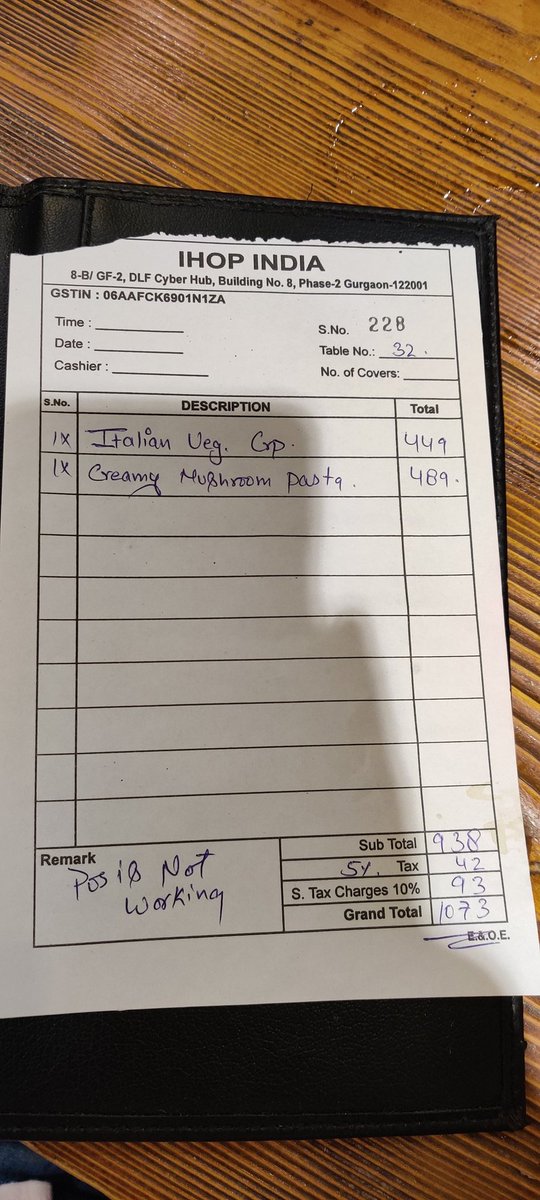 IHOP INDIA
8-B/ GF-2, DLF Cyber Hub, Building No. 8, Phase-2 Gurgaon-122001
GSTIN : 06AAFCK6901N1ZA
Time :
S.No. 228
Date :
Table No.: 32.
Cashier :
No. of Covers:
S.No. DESCRIPTION Total
1X Italian Veg. Crp. 449
1X Creamy Mushroom Pasta. 489.
Sub Total 938
Remark
5%. Tax 42
Pos is Not
S. Tax Charges 10% 93
working
Grand Total 1073
E.&.O.E.